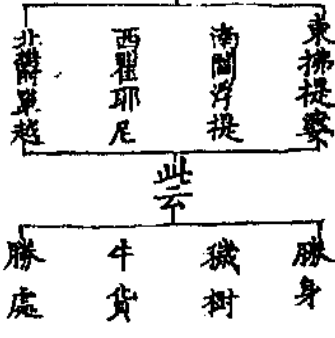 東拂提婆
南閻浮提
西瞿耶尼
北欝單越
此云
勝身
穢樹
牛貨
勝處